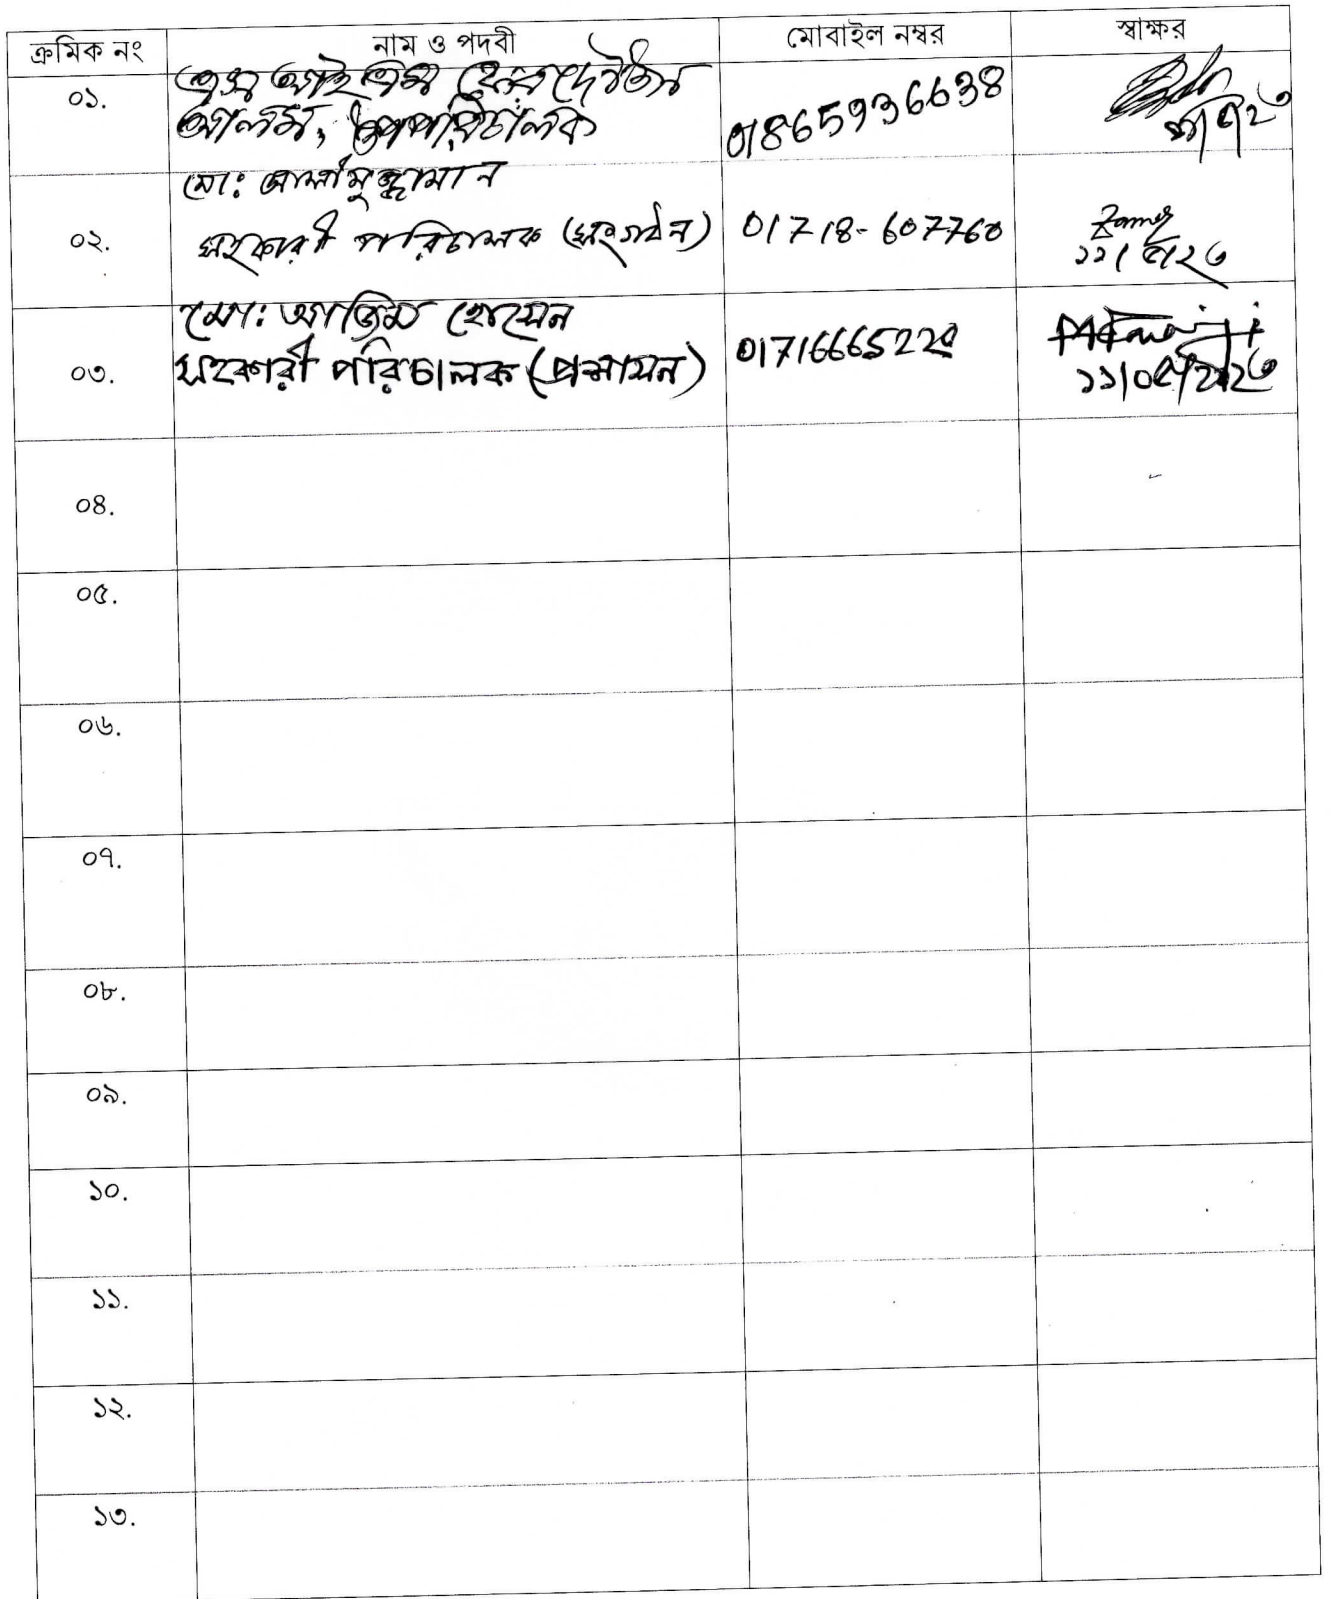 ক্রমিক নং নাম ও পদবী মোবাইল নম্বর স্বাক্ষর
০১. এস আই এম ফেরদৌউস
আলম, উপপরিচালক 01865936638
মো: জালামুজ্জামান
০২. সহকারী পরিচালক (সংগঠন) 01718-607760
১১/৫/২৩
মো: আজিম হোসেন
০৩. সহকারী পরিচালক (প্রশাসন) 01716665229
১১/০৫/২০২৩
০৪.
০৫.
০৬.
০৭.
০৮.
০৯.
১০.
১১.
১২.
১৩.